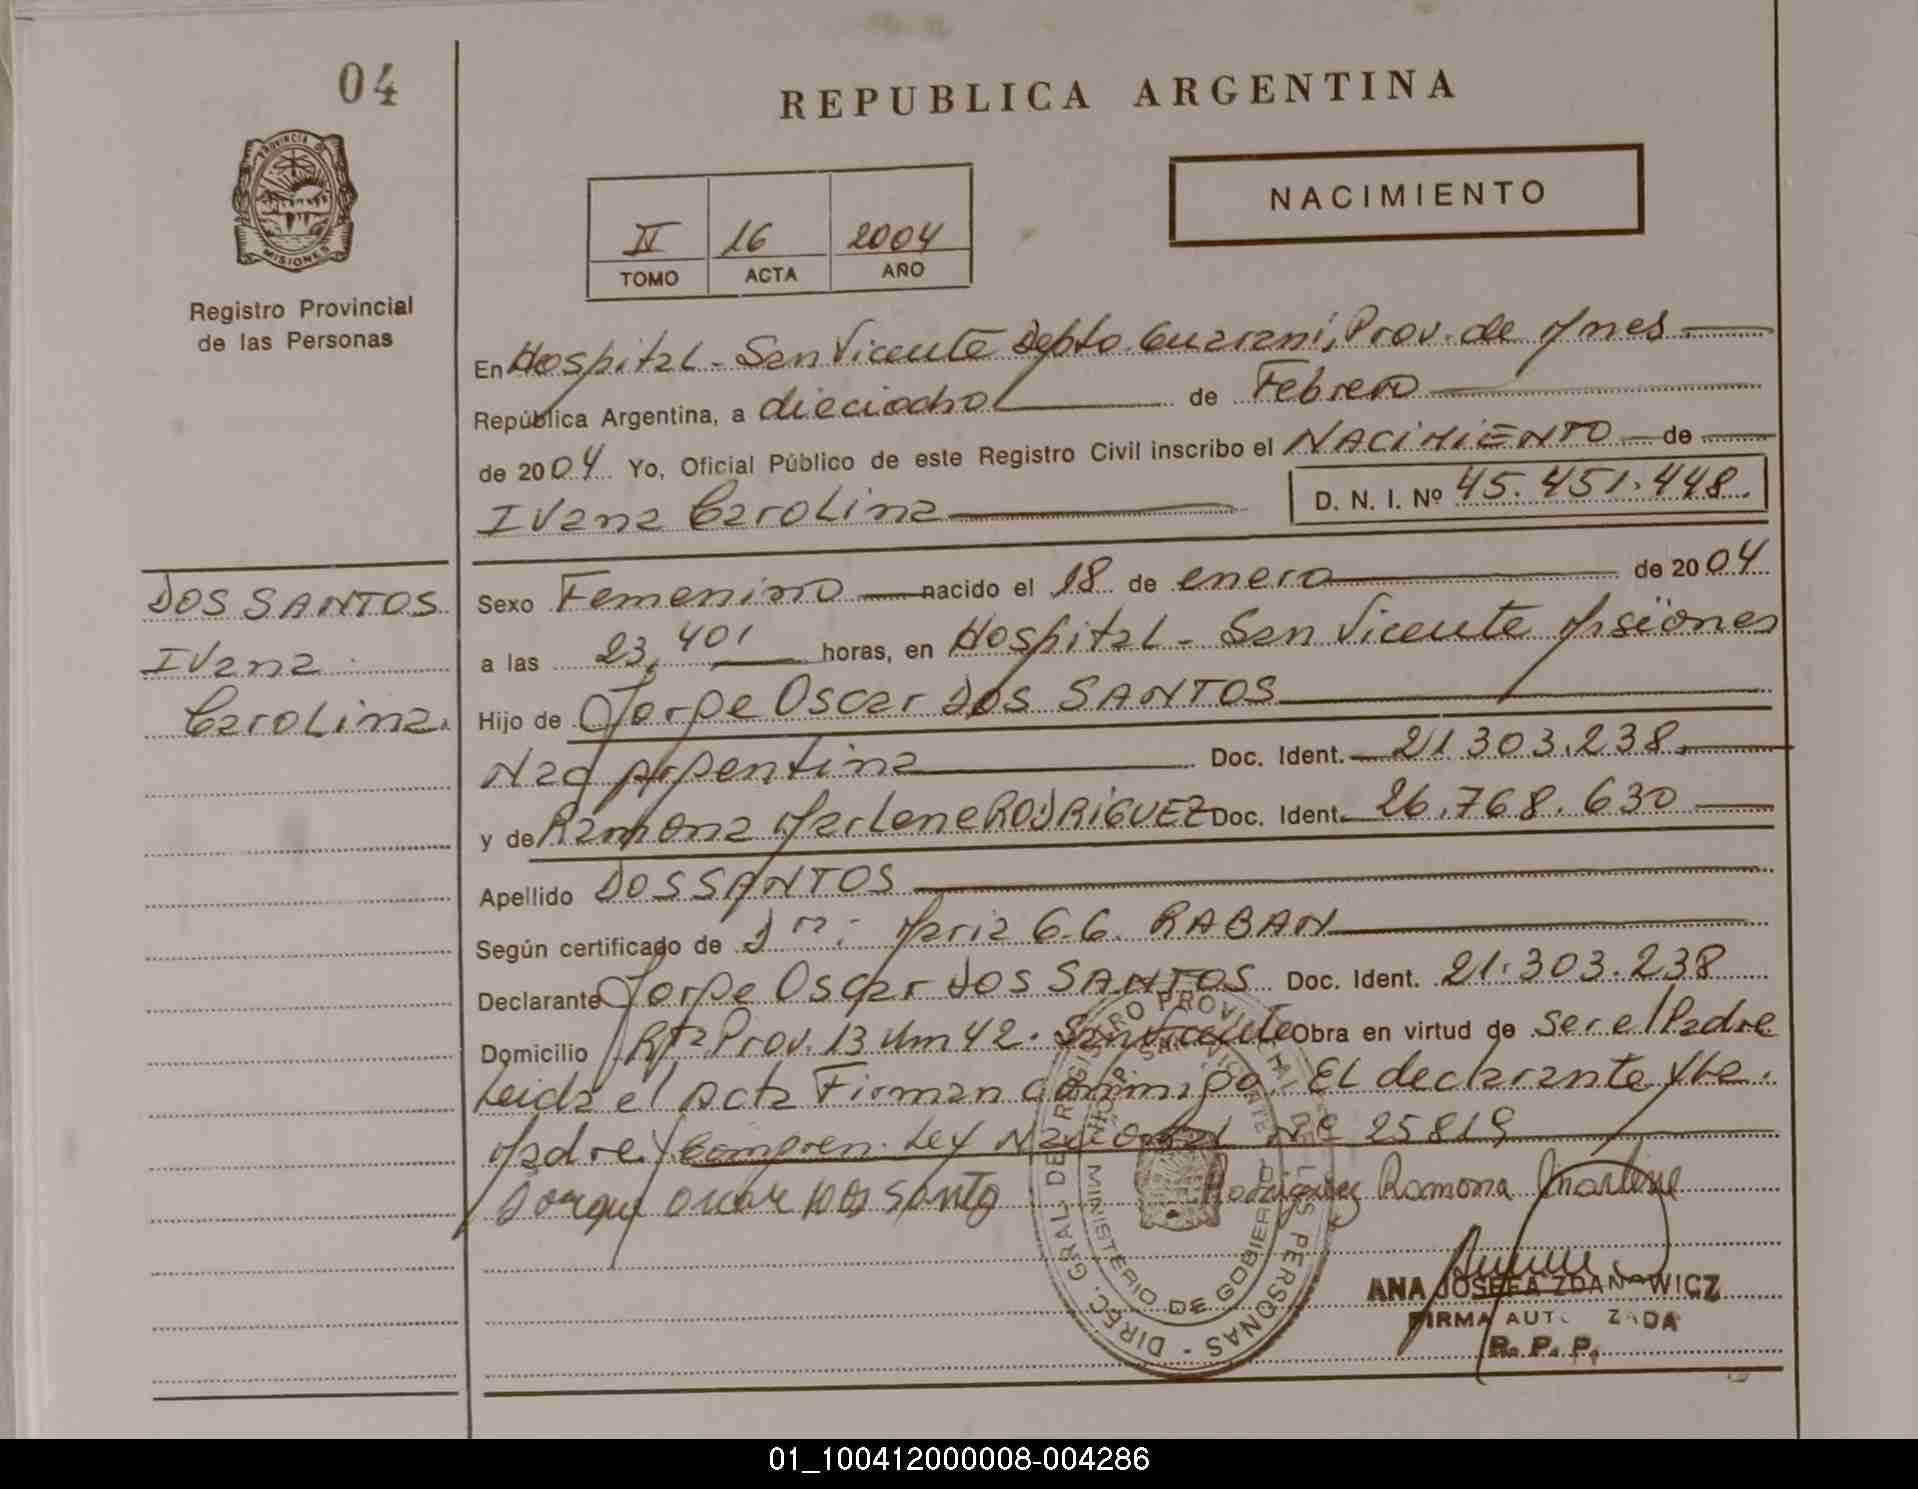 04
REPUBLICA ARGENTINA
PROVINCIA DE MISIONES
NACIMIENTO
II 16 2004
TOMO ACTA AÑO
Registro Provincial
de las Personas
En Hospital - San Vicente Depto. Guaraní, Prov. de Mnes.
República Argentina, a dieciocho de Febrero
de 2004 Yo, Oficial Público de este Registro Civil inscribo el NACIMIENTO de
Ivana Carolina D. N. I. Nº 45.451.448.
DOS SANTOS
Ivana
Carolina.
Sexo Femenino nacido el 18 de enero de 2004
a las 23,40' horas, en Hospital - San Vicente Misiones
Hijo de Jorge Oscar DOS SANTOS
Nac Argentina Doc. Ident. 21.303.238.
y de Ramona Marlene RODRIGUEZ Doc. Ident. 26.768.630
Apellido DOS SANTOS
Según certificado de Maria G.G. RABAN
Declarante Jorge Oscar DOS SANTOS Doc. Ident. 21.303.238
Domicilio Rta Prov. 13 Km 42. San Vicente Obra en virtud de ser el Padre
Leida el Acta Firman conmigo El declarante y la
Madre y Compren. Ley Nacional Nº 25819
Jorque Oscar Dos Santo Rodriguez Ramona Marlene
DIREC. GRAL. DE REGISTRO PROVINCIAL DE LAS PERSONAS
MINISTERIO DE GOBIERNO
ANA JOSEFA ZDANOWICZ
FIRMA AUTORIZADA
R. P. P.
01_100412000008-004286